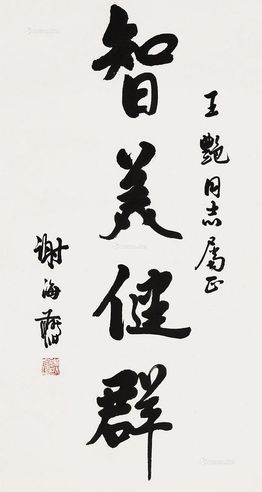 王艷同志属正
智美健群
謝海燕